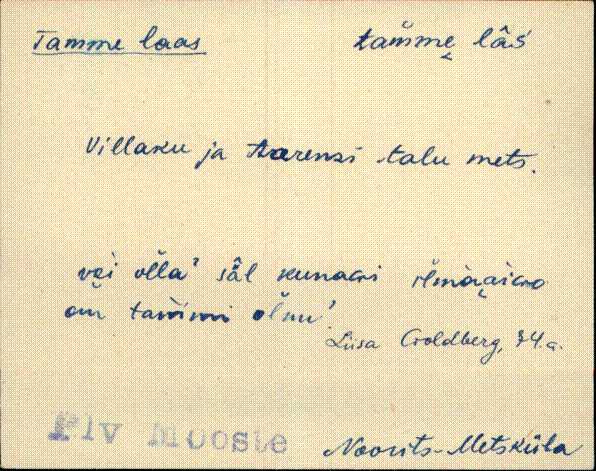 Tamme laas
tämmḙ lâś
Villaku ja Aarenzi talu mets.
või olla' säl kunagi
an tammi olnu'.
Liisa Goldberg, 74.a.
Plv Mooste
Noorits-Metsküla